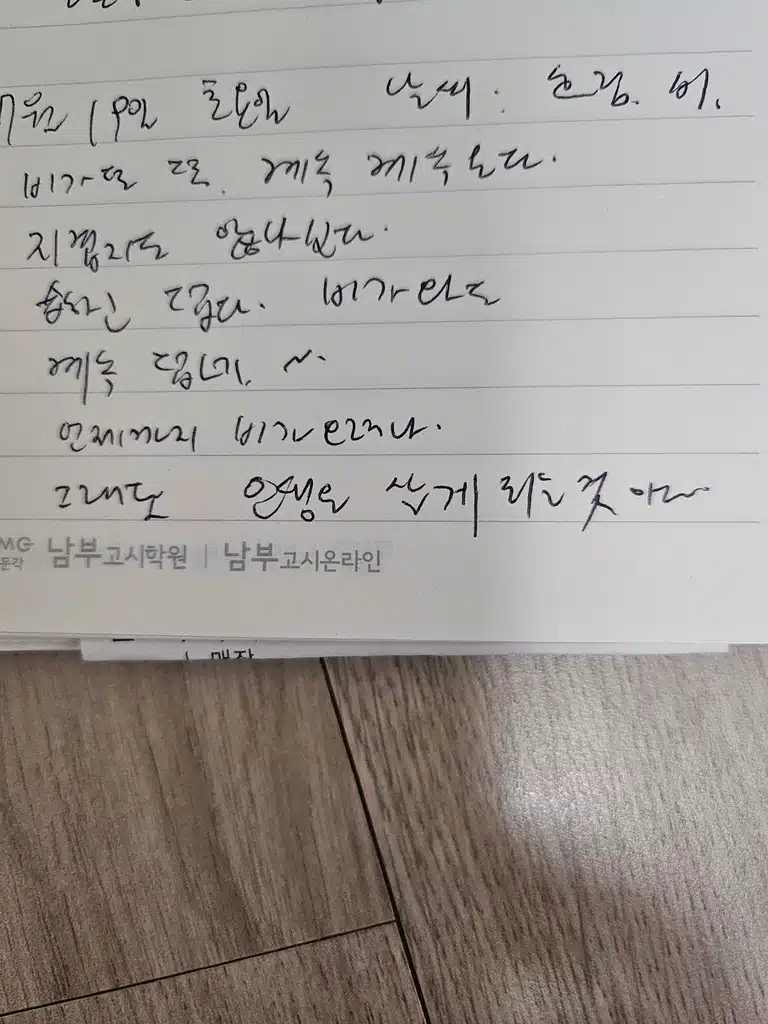 7월 19일 토요일 날씨: 흐림. 비.
비가 또 또. 계속 계속 온다.
지겹지도 않나 싶다.
습하고 덥다. 비가 와도
계속 덥네. ~.
언제까지 비가 오려나.
그래도 인생은 살게 되는 것 이라
남부고시학원 | 남부고시온라인
매장